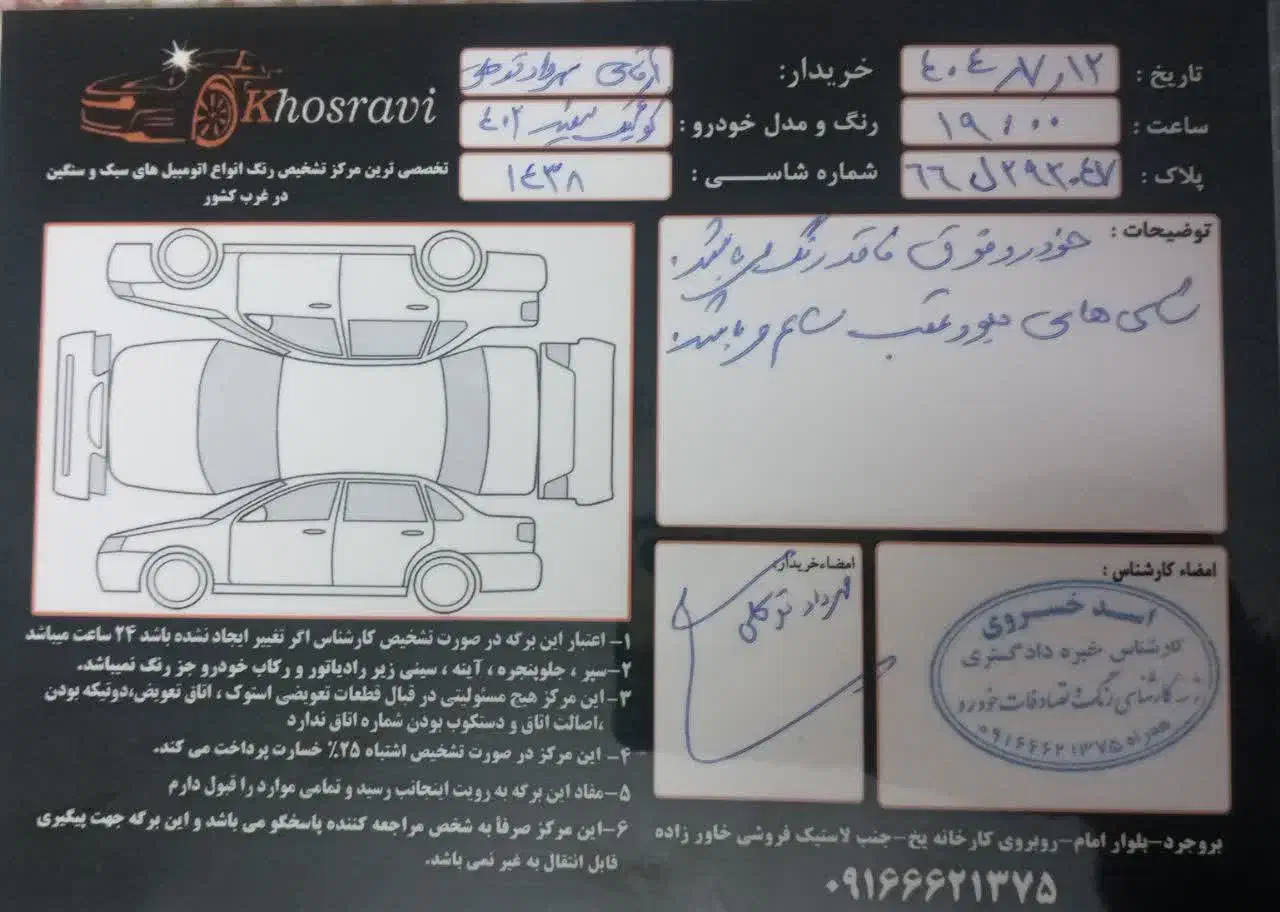 Khosravi
تخصصی ترین مرکز تشخیص رنگ انواع اتومبیل های سبک و سنگین
در غرب کشور
تاریخ : ۴۰۴٫۷٫۱۲
خریدار: آقای مهرداد توکلی
ساعت : ۱۹:۰۰
رنگ و مدل خودرو : کوئیک سفید ۴۰۲
پلاک : ۶۶ ل ۲۹۳ ۰۴۷
شماره شاسی : ۱۴۳۸
توضیحات : خودرو فوق فاقد رنگ می باشد.
شاسی های جلو و عقب سالم می باشد.
امضاء خریدار:
مهرداد توکلی
امضاء کارشناس :
اسد خسروی
کارشناس خبره دادگستری
کارشناسی رنگ و تصادفات خودرو
همراه ۰۹۱۶۶۶۲۱۳۷۵
۱- اعتبار این برگه در صورت تشخیص کارشناس اگر تغییر ایجاد نشده باشد ۲۴ ساعت میباشد
۲- سپر ، جلوپنجره ، آینه ، سینی زیر رادیاتور و رکاب خودرو جز رنگ نمیباشد.
۳- این مرکز هیچ مسئولیتی در قبال قطعات تعویضی استوک ، اتاق تعویض،دوتیکه بودن
،اصالت اتاق و دستکوب بودن شماره اتاق ندارد
۴- این مرکز در صورت تشخیص اشتباه ۲۵٪ خسارت پرداخت می کند.
۵-مفاد این برگه به رویت اینجانب رسید و تمامی موارد را قبول دارم
۶-این مرکز صرفأ به شخص مراجعه کننده پاسخگو می باشد و این برگه جهت پیگیری
قابل انتقال به غیر نمی باشد.
بروجرد-بلوار امام-روبروی کارخانه یخ-جنب لاستیک فروشی خاور زاده
۰۹۱۶۶۶۲۱۳۷۵